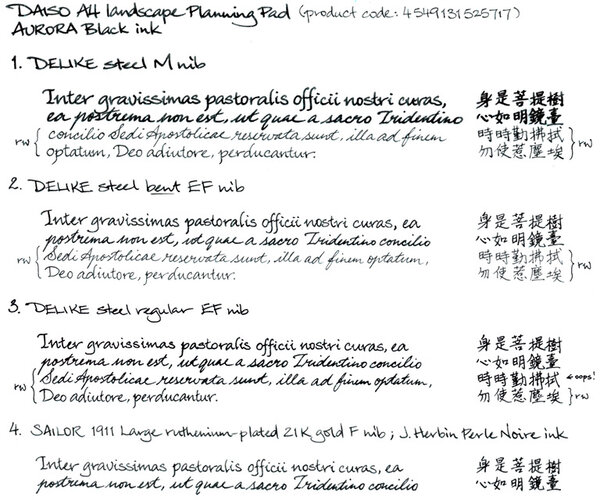 DAISO A4 landscape Planning Pad (product code: 4549131525717)
AURORA Black ink
1. DELIKE steel M nib
Inter gravissimas pastoralis officii nostri curas,
ea postrema non est, ut quae a sacro Tridentino
rw { concilio Sedi Apostolicae reservata sunt, illa ad finem
optatum, Deo adiutore, perducantur.
身是菩提樹
心如明鏡臺
時時勤拂拭
勿使惹塵埃 } rw
2. DELIKE steel bent EF nib
Inter gravissimas pastoralis officii nostri curas, ea
postrema non est, ut quae a sacro Tridentino concilio
rw { Sedi Apostolicae reservata sunt, illa ad finem optatum,
Deo adiutore, perducantur.
身是菩提樹
心如明鏡臺
時時勤拂拭
勿使惹塵埃 } rw
3. DELIKE steel regular EF nib
Inter gravissimas pastoralis officii nostri curas, ea
postrema non est, ut quae a sacro Tridentino concilio
rw { Sedi Apostolicae reservata sunt, illa ad finem optatum,
Deo adiutore, perducantur.
身是菩提樹
心如明鏡臺
時時勤拂拭 ← oops!
勿使惹塵埃 } rw
4. SAILOR 1911 Large ruthenium-plated 21K gold F nib ; J. Herbin Perle Noire ink
Inter gravissimas pastoralis officii nostri curas, ea
postrema non est, ut quae a sacro Tridentino concilio
身是菩提樹
心如明鏡臺